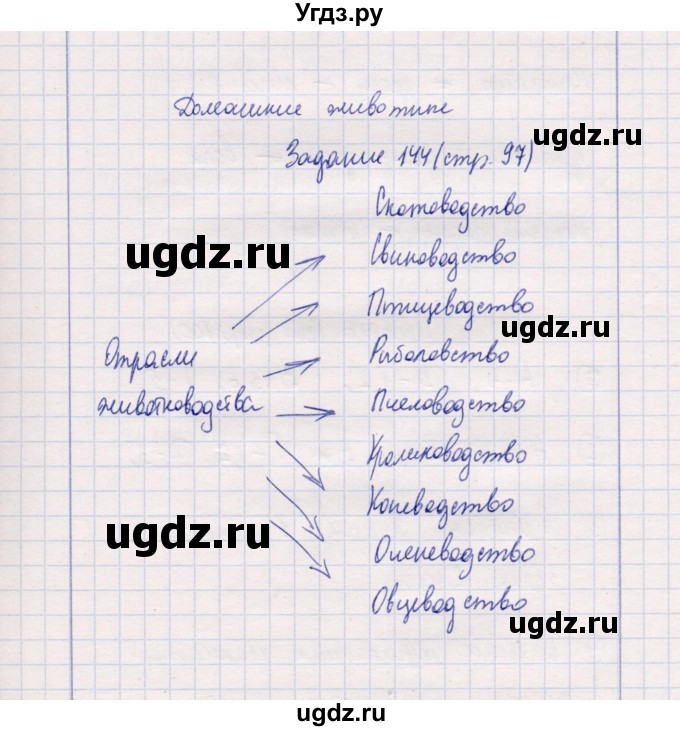 Угдз.ру
Домашние животные
ugdz.ru
Задание 144 (стр. 97)
Скотоводство
ugdz.ru
Свиноводство
Птицеводство
ugdz.ru
Отрасли
животноводства
Рыболовство
Пчеловодство
Кролиководство
Коневодство
ugdz.ru
Оленеводство
Овцеводство
ugdz.ru
ugdz.ru